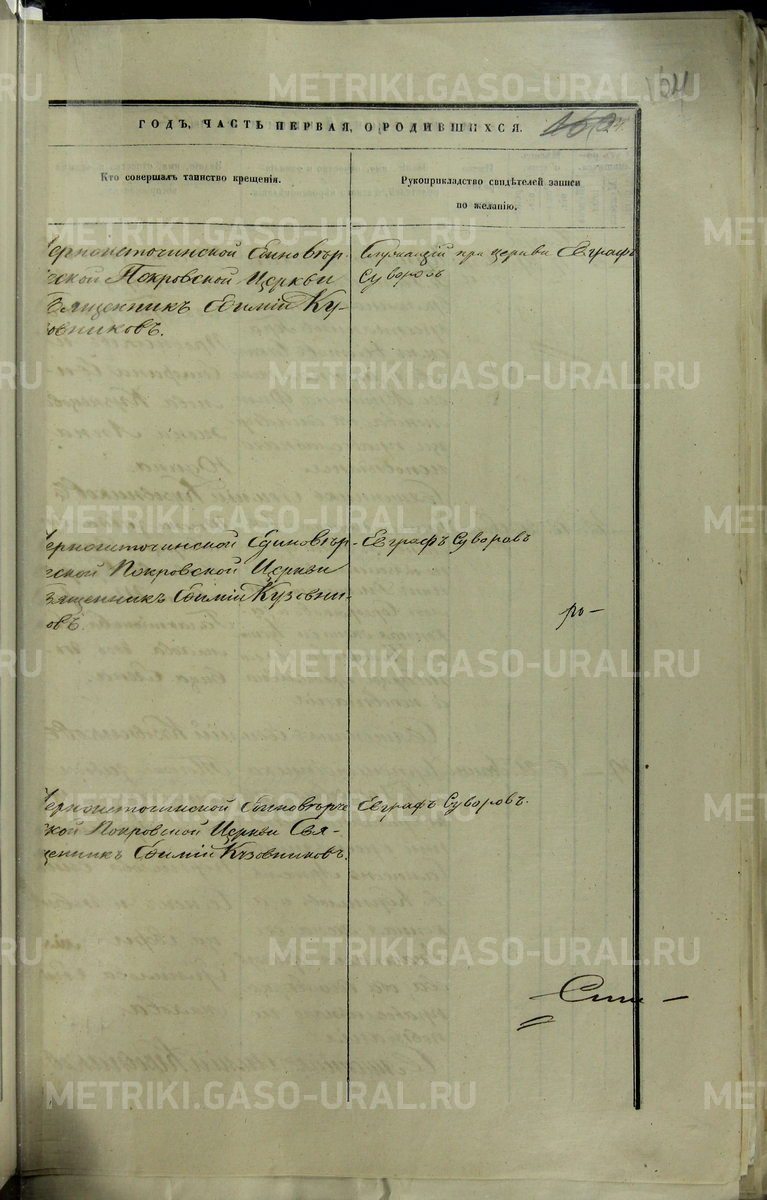 164
ГОДЪ, ЧАСТЬ ПЕРВАЯ, О РОДИВШИХСЯ.
Кто совершалъ таинство крещенія.
Рукоприкладство свидѣтелей записи
по желанію.
Черноисточинской Единовѣр-
ческой Покровской Церкви
Священникъ Евѳимій Ку-
зовниковъ.
Служащій при церкви Евграфъ
Суворовъ
Черноисточинской Единовѣр-
ческой Покровской Церкви
Священникъ Евѳимій Кузовни-
ковъ.
Евграфъ Суворовъ
Черноисточинской Единовѣрче
ской Покровской Церкви Свя-
щенникъ Евѳимій Кузовниковъ.
Евграфъ Суворовъ.
METRIKI.GASO-URAL.RU